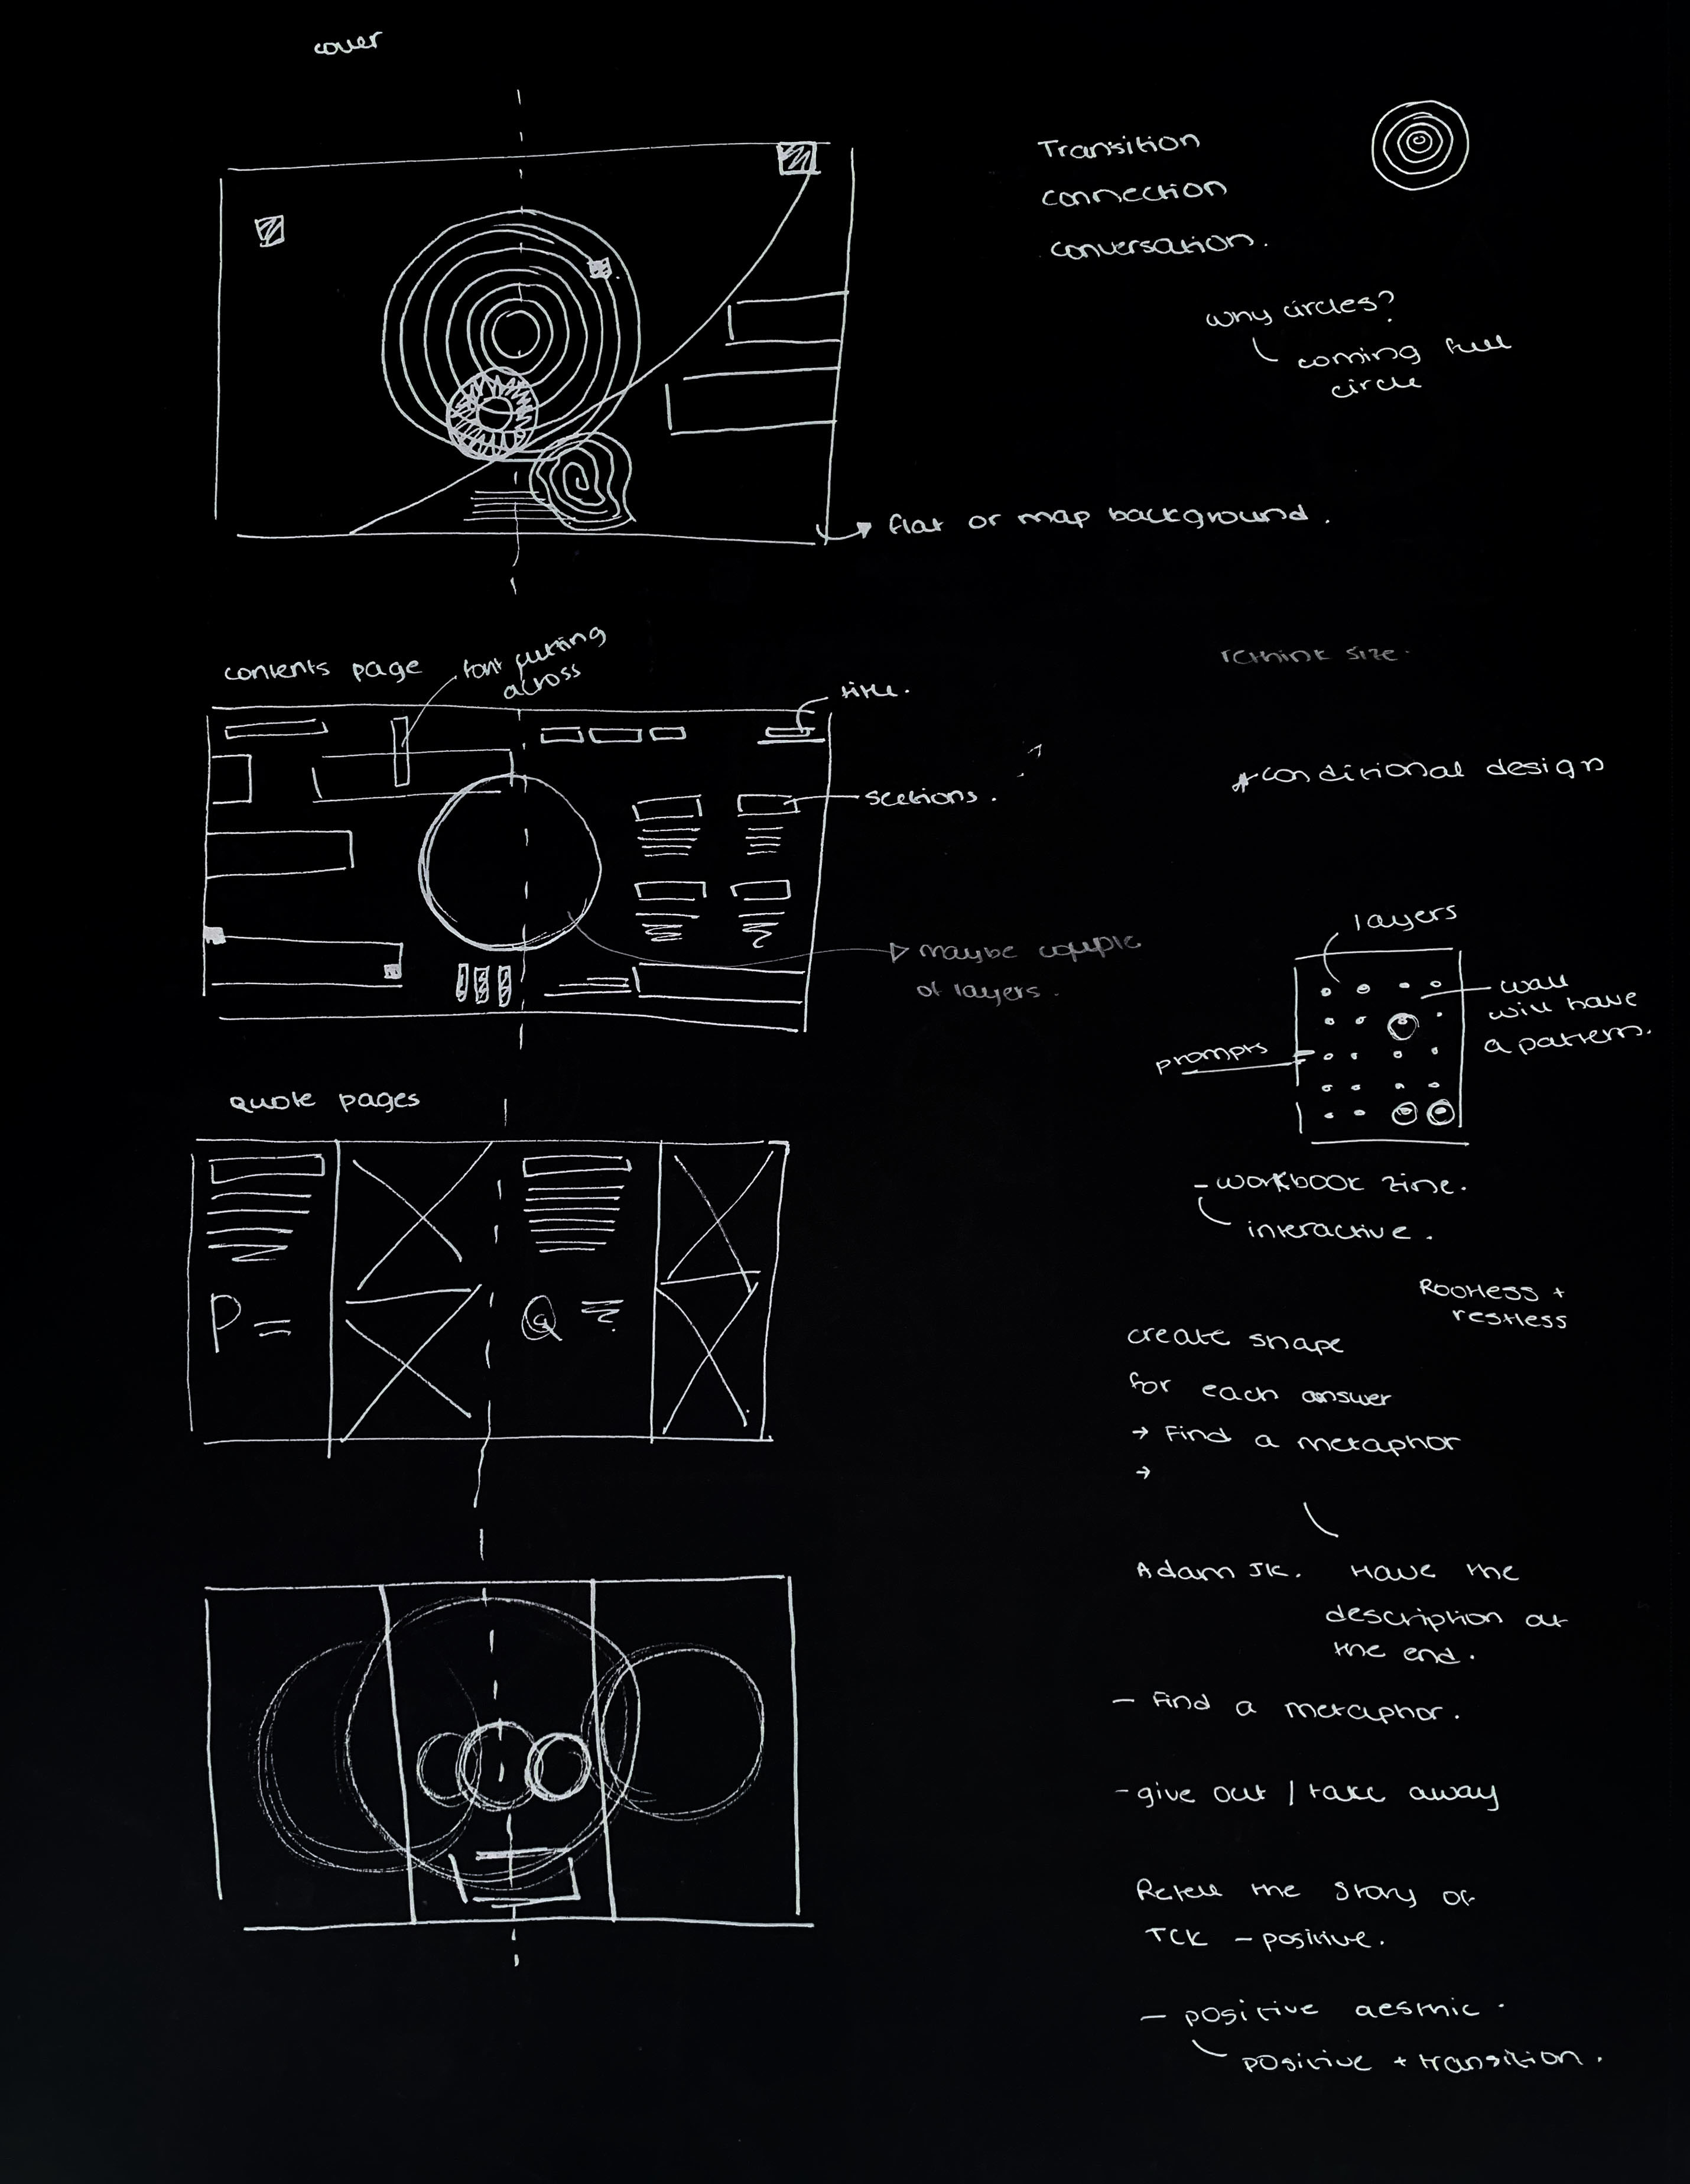 cover
Transition
connection
conversation.
why circles?
coming full
circle
flat or map background.
contents page
font
across
title.
rethink size.
*conditional design
sections.
maybe couple
of layers.
layers
wall
will have
a pattern.
prompts
quote pages
- workbook zine.
interactive.
P =
Q
Rootless +
restless
create shape
for each answer
→ Find a metaphor
→
Adam JK.
Have the
description at
the end.
- Find a metaphor.
- give out / take away
Retell the story of
TCK - positive.
- positive aesthic.
positive + transition.